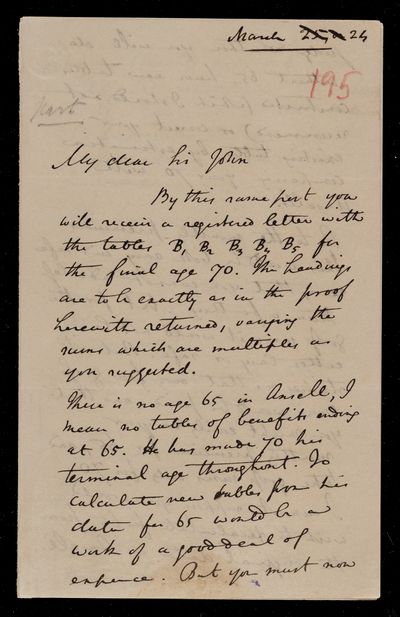 March 25, 26
195
Part
My dear Sir John
By this same post you
will receive a registered letter with
the tables B1 B2 B3 B4 B5 for
the final age 70. The headings
are to be exactly as in the proof
herewith returned, varying the
sums which are multiples as
you suggested.
There is no age 65 in Ansell, I
mean no tables of benefits ending
at 65. He has made 70 his
terminal age throughout. To
calculate new tables from his
data for 65 would be a
work of a good deal of
expence. But you must now